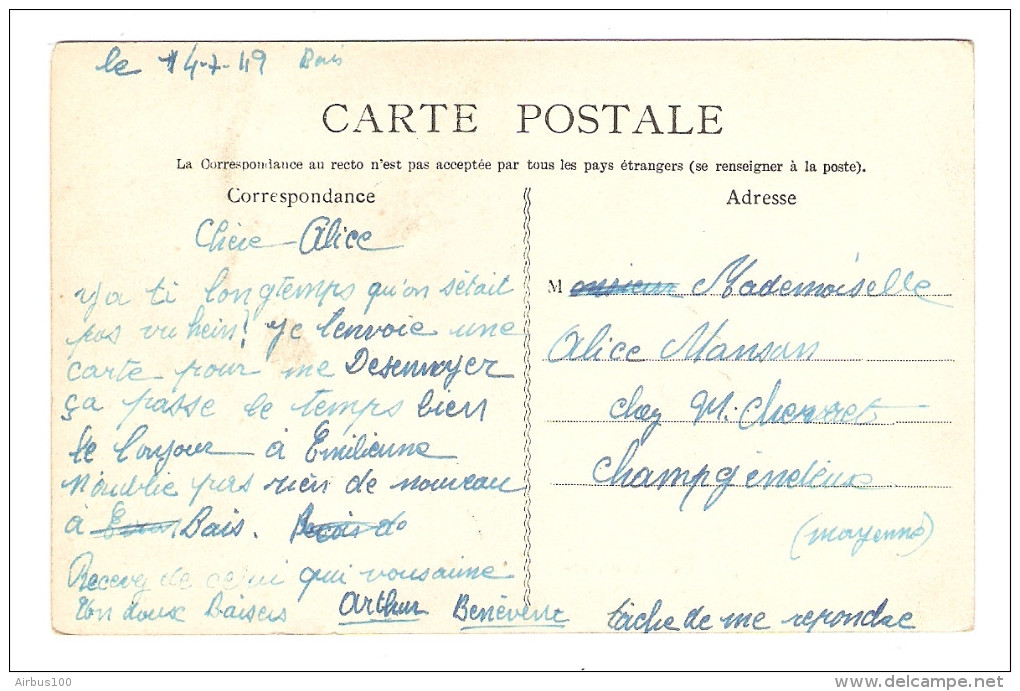 le 14-7-49 Bais
CARTE POSTALE
La Correspondance au recto n'est pas acceptée par tous les pays étrangers (se renseigner à la poste).
Correspondance
Chère Alice
y a ti longtemps qu'on s'était
pas vu hein! Je t'envoie une
carte pour me Desennuyer
ça passe le temps bien
le bonjour à Emilienne
N'oublie pas rien de nouveau
à Bais.
Recevez de celui qui vous aime
ton doux Baisers Arthur Bénévent
Adresse
M Mademoiselle
Alice Manson
chez M. Chevret
Champgénéteux
(mayenne)
tâche de me repondre
Airbus100
www.delcampe.net